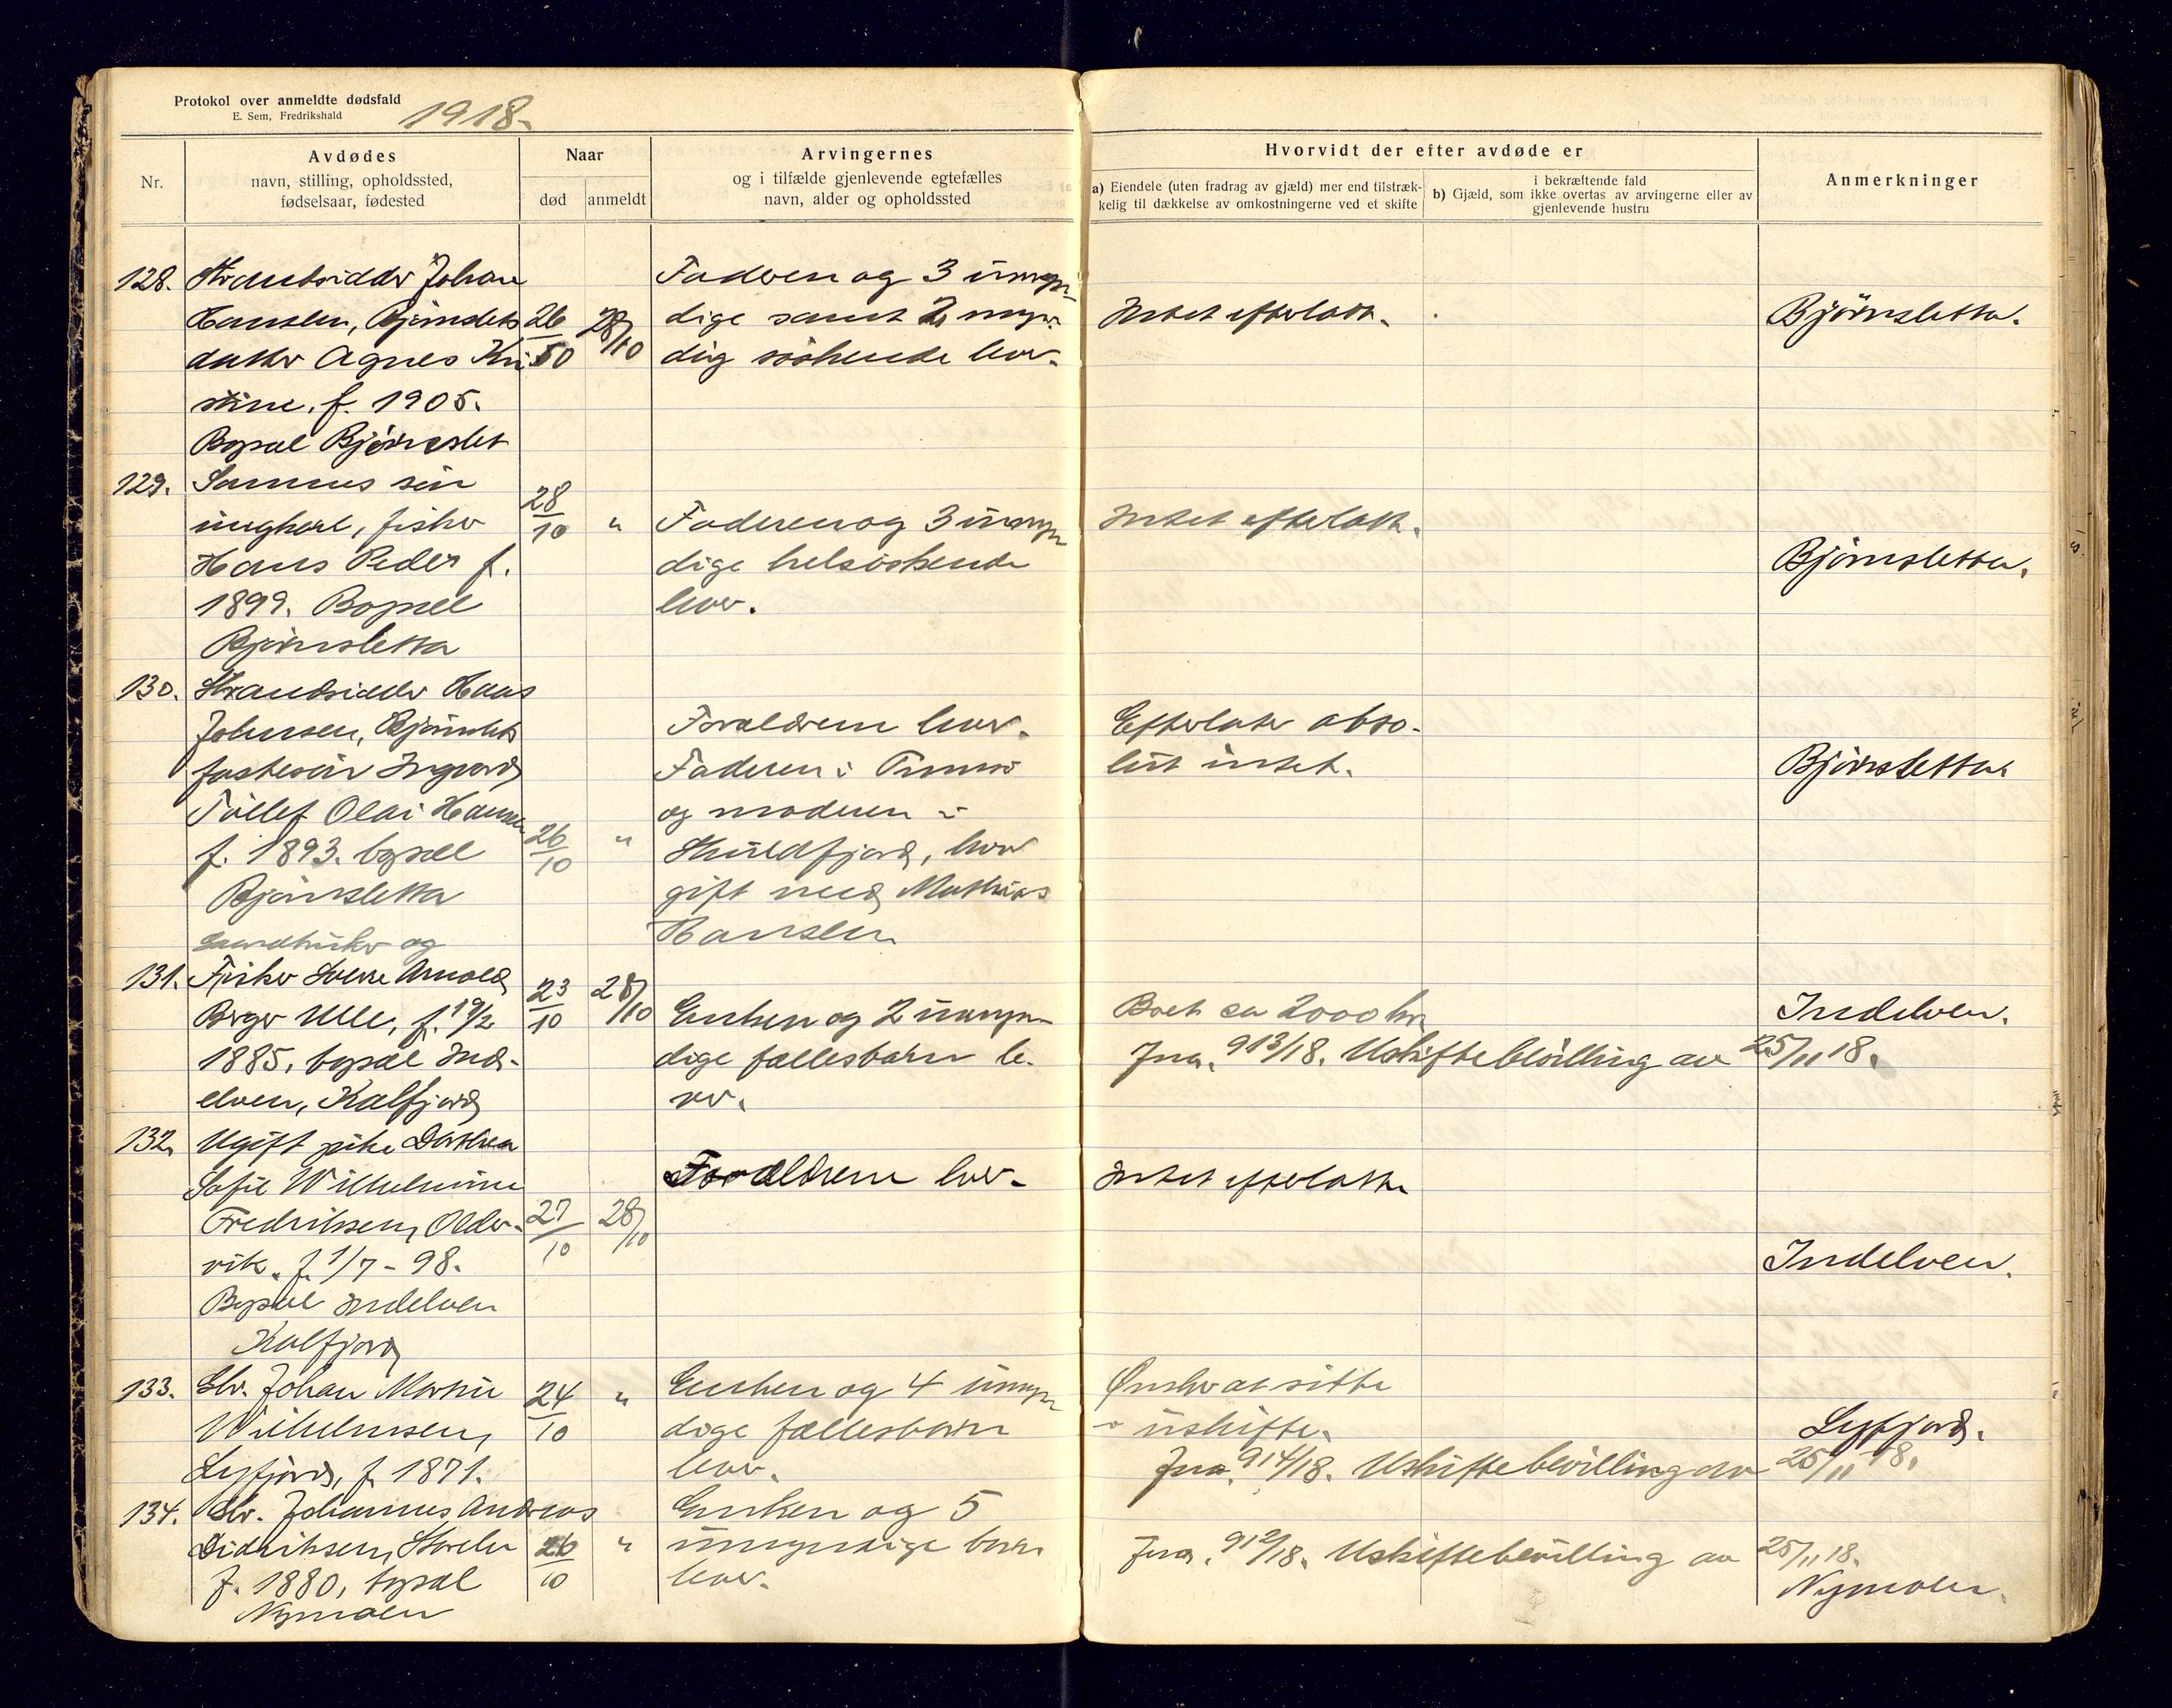 Protokol over anmeldte dødsfald
E. Sem, Fredrikshald
1918.
Nr.
Avdødes
navn, stilling, opholdssted,
fødselsaar, fødested
Naar
død
anmeldt
Arvingernes
og i tilfælde gjenlevende egtefælles
navn, alder og opholdssted
Hvorvidt der efter avdøde er
a) Eiendele (uten fradrag av gjæld) mer end tilstræk-
kelig til dækkelse av omkostningerne ved et skifte
i bekræftende fald
b) Gjæld, som ikke overtas av arvingerne eller av
gjenlevende hustru
Anmerkninger
128. Strandsidder Johan
Hansen, Bjørnslets
datter Agnes Kri
stine, f. 1905.
Bopæl Bjørnslet
26/10
28/10
Faderen og 3 umyn-
dige samt 2 myn-
dig søskende lever.
Intet efterlatt.
Bjørnsletta.
129. Sammes søn
ungkarl, fisker
Hans Peder f.
1899. Bopæl
Bjørnsletta
28/10
"
Faderen og 3 umyn
dige helsøskende
lever.
Intet efterlatt.
Bjørnsletta.
130. Strandsidder Hans
Johnsen, Bjørnslets
fostersøn Ingvard
Tollef Olai Hansen
f. 1893. bopæl
Bjørnsletta
26/10
"
Forældrene lever.
Faderen i Tromsø
og moderen i
Skulsfjord, hvor
gift med Mathias
Hansen
Efterlater abso-
lut intet.
Bjørnsletta.
gaardbruker og
131. Fisker Sverre Arnold
Berger Ulle, f. 19/2
1885, bopæl Ind-
elven, Kalfjord
23/10
28/10
Enken og 2 umyn-
dige fællesbarn le-
ver.
Boet ca 2000 kr
Jna. 913/18. Uskiftebevilling av 25/11 18.
Indelven.
132. Ugift pike Dorthea
Sofie Wilhelmine
Fredriksen, Older-
vik. f. 1/7 - 98.
Bopæl Indelven
Kalfjord
27/10
28/10
Forældrene lever.
Intet efterlatt
Indelven.
133. Gbr. Johan Martin
Wilhelmsen,
Lyfjord, f. 1871.
24/10
"
Enken og 4 umyn
dige fællesbarn
lever.
Ønsker at sitte
i uskifte.
Jna. 914/18. Uskiftebevilling av 25/11 18.
Lyfjord.
134. Gbr. Johannes Andreas
Didriksen, Storelv
f. 1880, bopæl
Nymoen
26/10
"
Enken og 5
umyndige barn
lever.
Jna. 912/18. Uskiftebevilling av 25/11 18.
Nymoen.